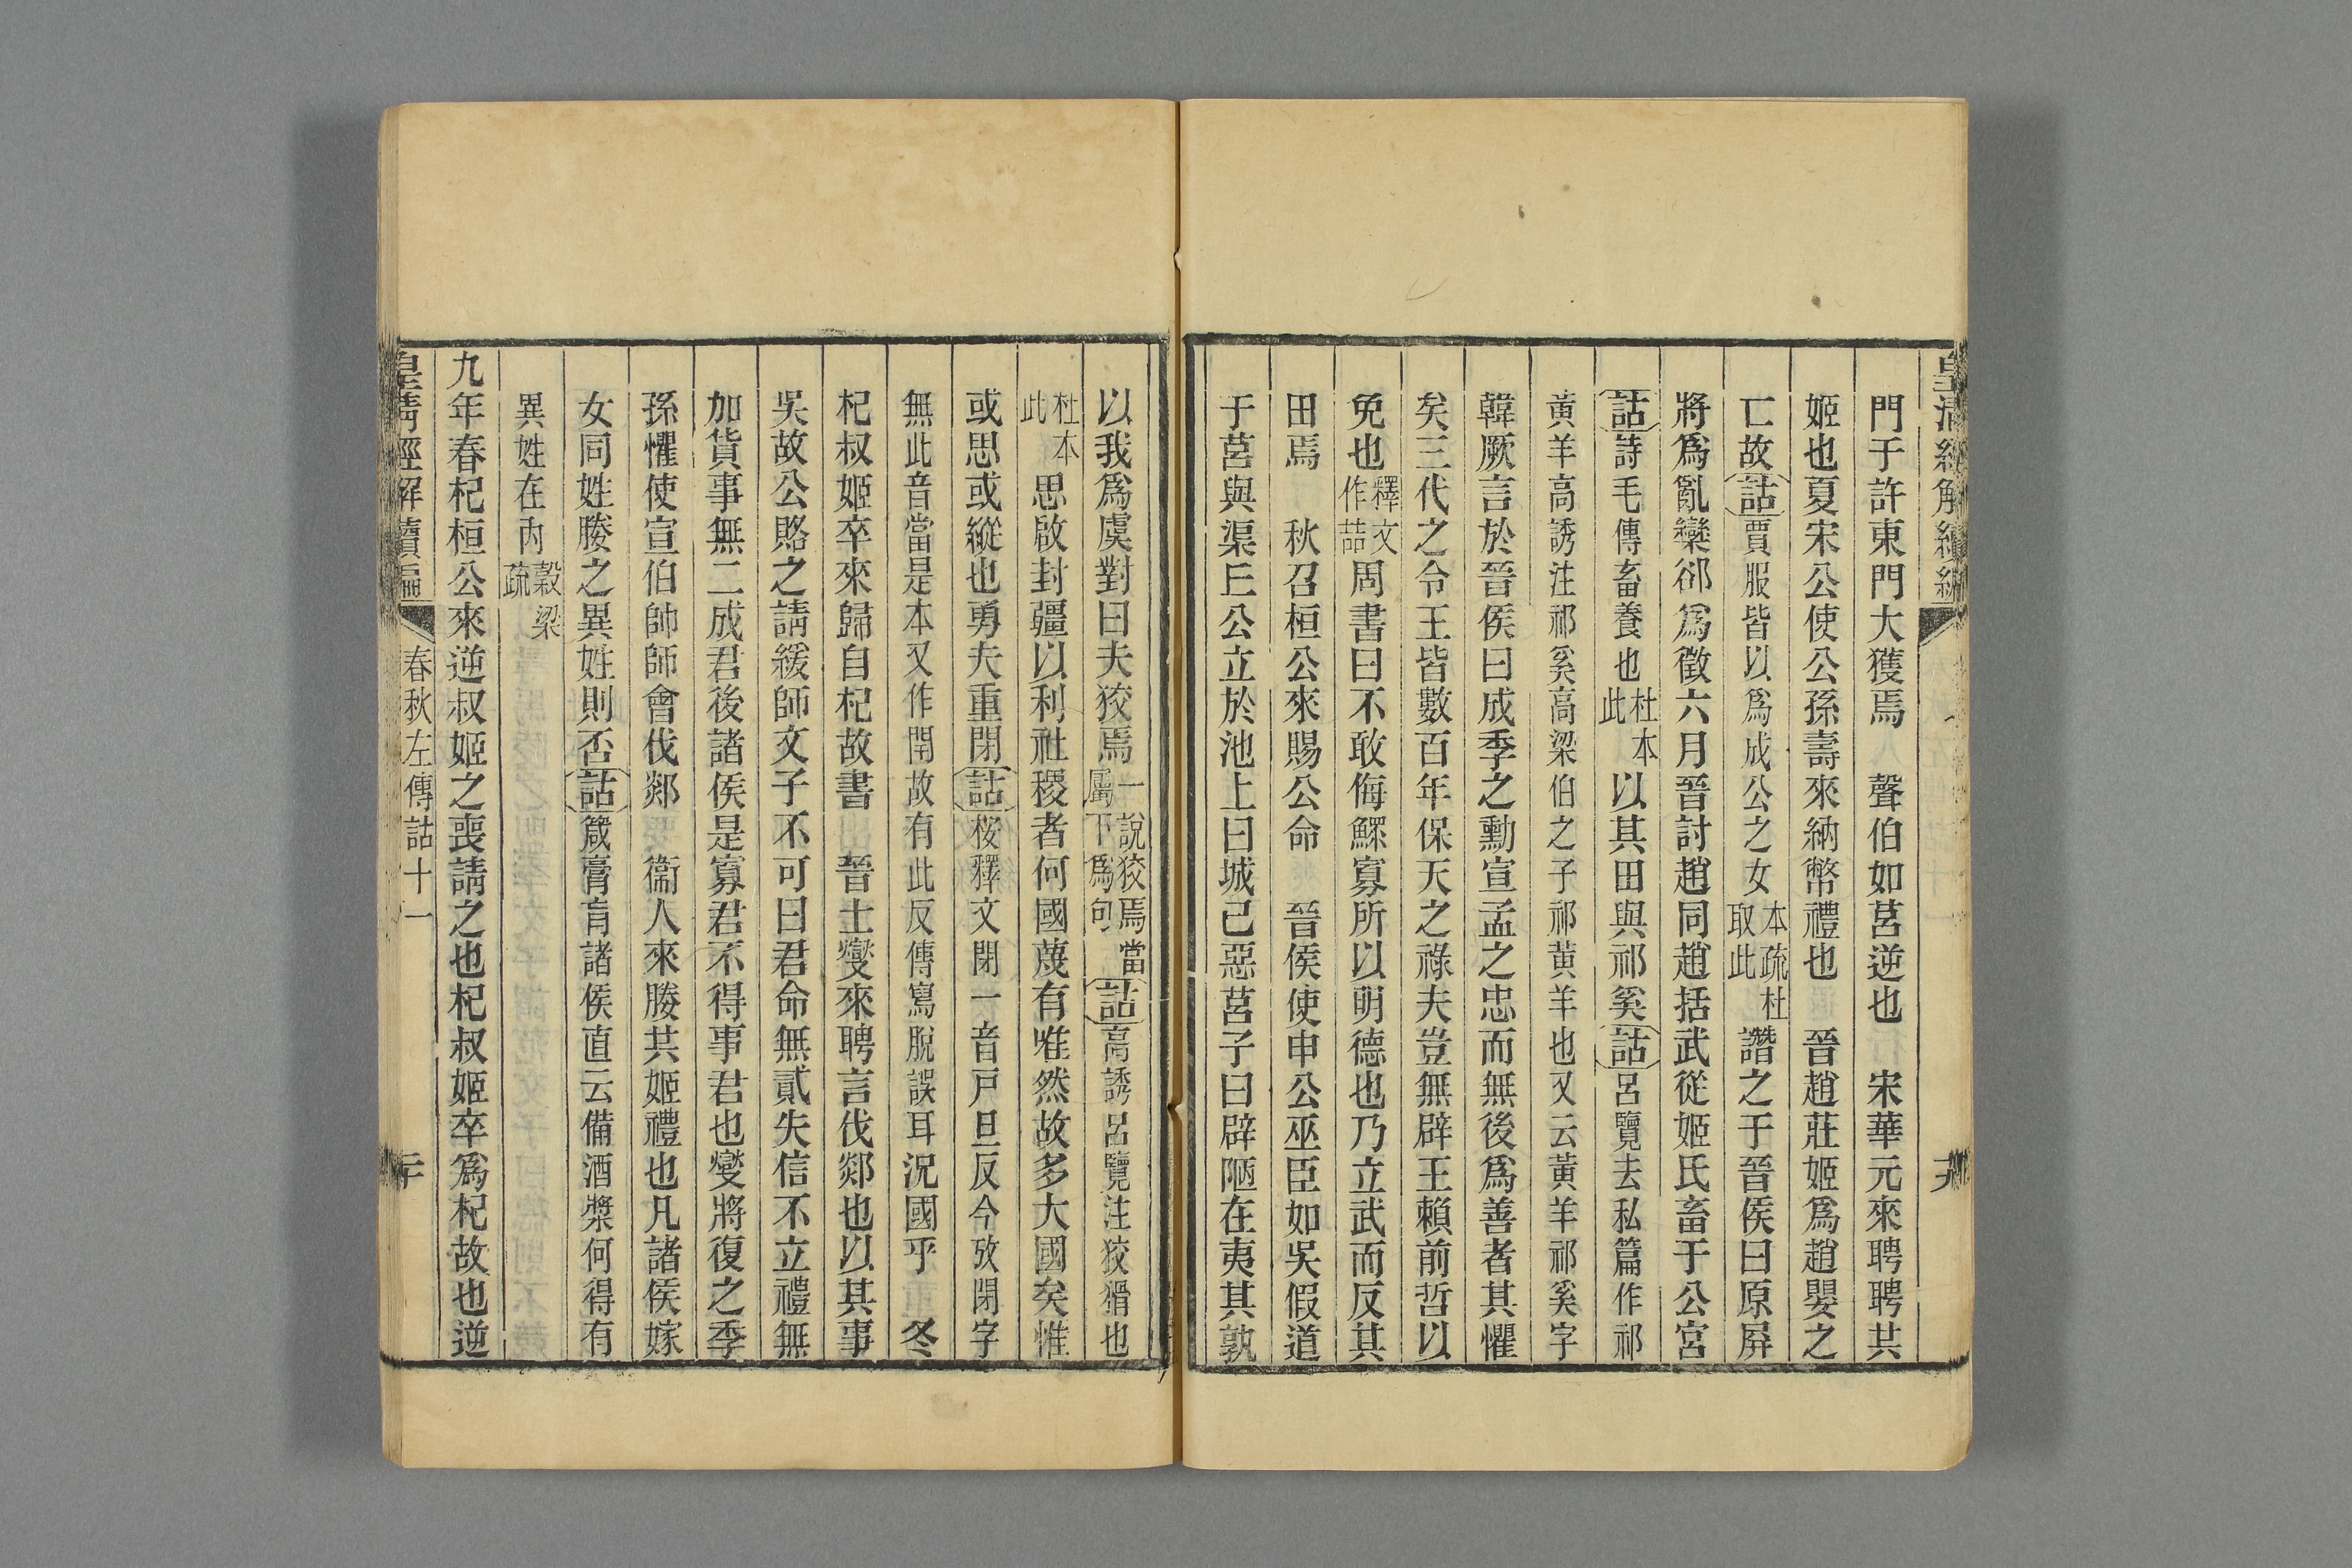 皇清經解續編
門于許東門大獲焉　聲伯如莒逆也　宋華元來聘聘共
姬也夏宋公使公孫壽來納幣禮也　晉趙莊姬爲趙嬰之
亡故詁賈服皆以爲成公之女本疏杜取此譖之于晉侯曰原屏
將爲亂欒郤爲徵六月晉討趙同趙括武從姬氏畜于公宮
詁詩毛傳畜養也杜本此以其田與祁奚詁呂覽去私篇作祁
黃羊高誘注祁奚高梁伯之子祁黃羊也又云黃羊祁奚字
韓厥言於晉侯曰成季之勳宣孟之忠而無後爲善者其懼
矣三代之令王皆數百年保天之祿夫豈無辟王賴前哲以
免也釋文作喆周書曰不敢侮鰥寡所以明德也乃立武而反其
田焉　秋召桓公來賜公命　晉侯使申公巫臣如吳假道
于莒與渠丘公立於池上曰城已惡莒子曰辟陋在夷其孰
以我爲虞對曰夫狡焉一說狡焉當屬下爲句詁高誘呂覽注狡猾也
杜本此思啟封疆以利社稷者何國蔑有唯然故多大國矣惟
或思或縱也勇夫重閉詁桉釋文閉一音戸旦反今攷閉字
無此音當是本又作閈故有此反傳寫脫誤耳況國乎　冬
杞叔姬卒來歸自杞故書　晉士燮來聘言伐郯也以其事
吳故公賂之請緩師文子不可曰君命無貳失信不立禮無
加貨事無二成君後諸侯是寡君不得事君也燮將復之季
孫懼使宣伯帥師會伐郯　衞人來媵共姬禮也凡諸侯嫁
女同姓媵之異姓則否詁箴膏肓諸侯直云備酒漿何得有
異姓在內穀梁疏
九年春杞桓公來逆叔姬之喪請之也杞叔姬卒爲杞故也逆
皇清經解續編　春秋左傳詁十一　二十